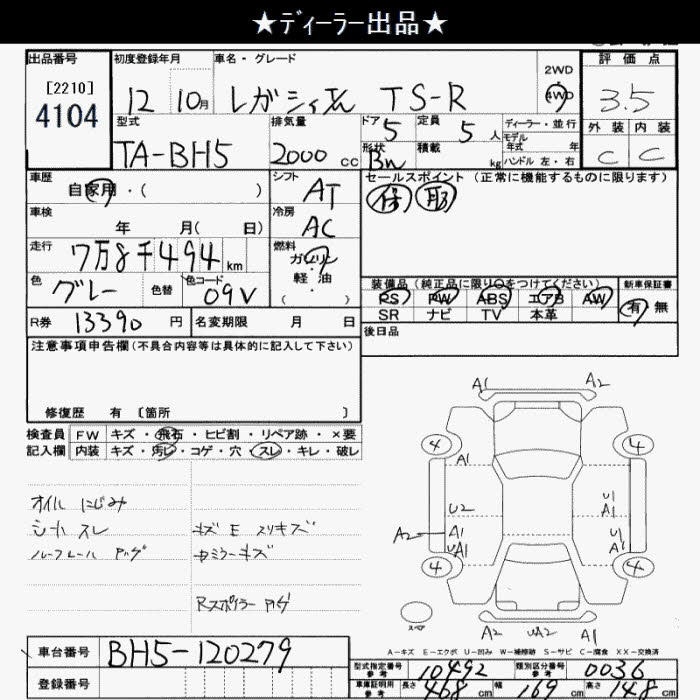 ★ディーラー出品★
出品番号 初度登録年月 車名・グレード 2WD 評価点
[2210] 12 10月 レガシィ TS-R 4WD 3.5
4104
型式 排気量 ドア 定員 ディーラー・並行 外装 内装
5 5人 モデル年式 年
TA-BH5 2000cc 形状 Bn 積載 kg ハンドル 左・右 C C
車歴 シフト セールスポイント(正常に機能するものに限ります)
自家用・( ) AT 保 取
車検 冷房
年 月( 日) AC
走行 燃料
7万8千494km ガソリン
軽・油
( )
色 色替 色コード 装備品(純正品に限り○をつけてください) 新車保証書
グレー 09V PS PW ABS エアB AW 有 無
SR ナビ TV 本革
R券 13390円 名変期限 月 日 後日品
注意事項申告欄(不具合内容等は具体的に記入して下さい)
修復歴 有 〔箇所 〕
検査員 FW キズ・飛石・ヒビ割・リペア跡・×要
記入欄 内装 キズ・汚レ・コゲ・穴・スレ・キレ・破レ
オイルにじみ
シートスレ キズE スリキズ
ルーフレール ハゲ
Rスポイラー ハゲ
A1 A2
4 4
A1
U2 U1 A1
A2 A1 UA1 U1 A1
4 4
スペア A2 UA2 A1
A-キズ E-エクボ U-凹み W-補修跡 S-サビ C-腐食 XX-交換済
車台番号 BH5-120279
型式指定番号 参考 10492 類別区分番号 参考 0036
登録番号
車庫証明用 参考 長さ 468cm 幅 169cm 高さ 148cm